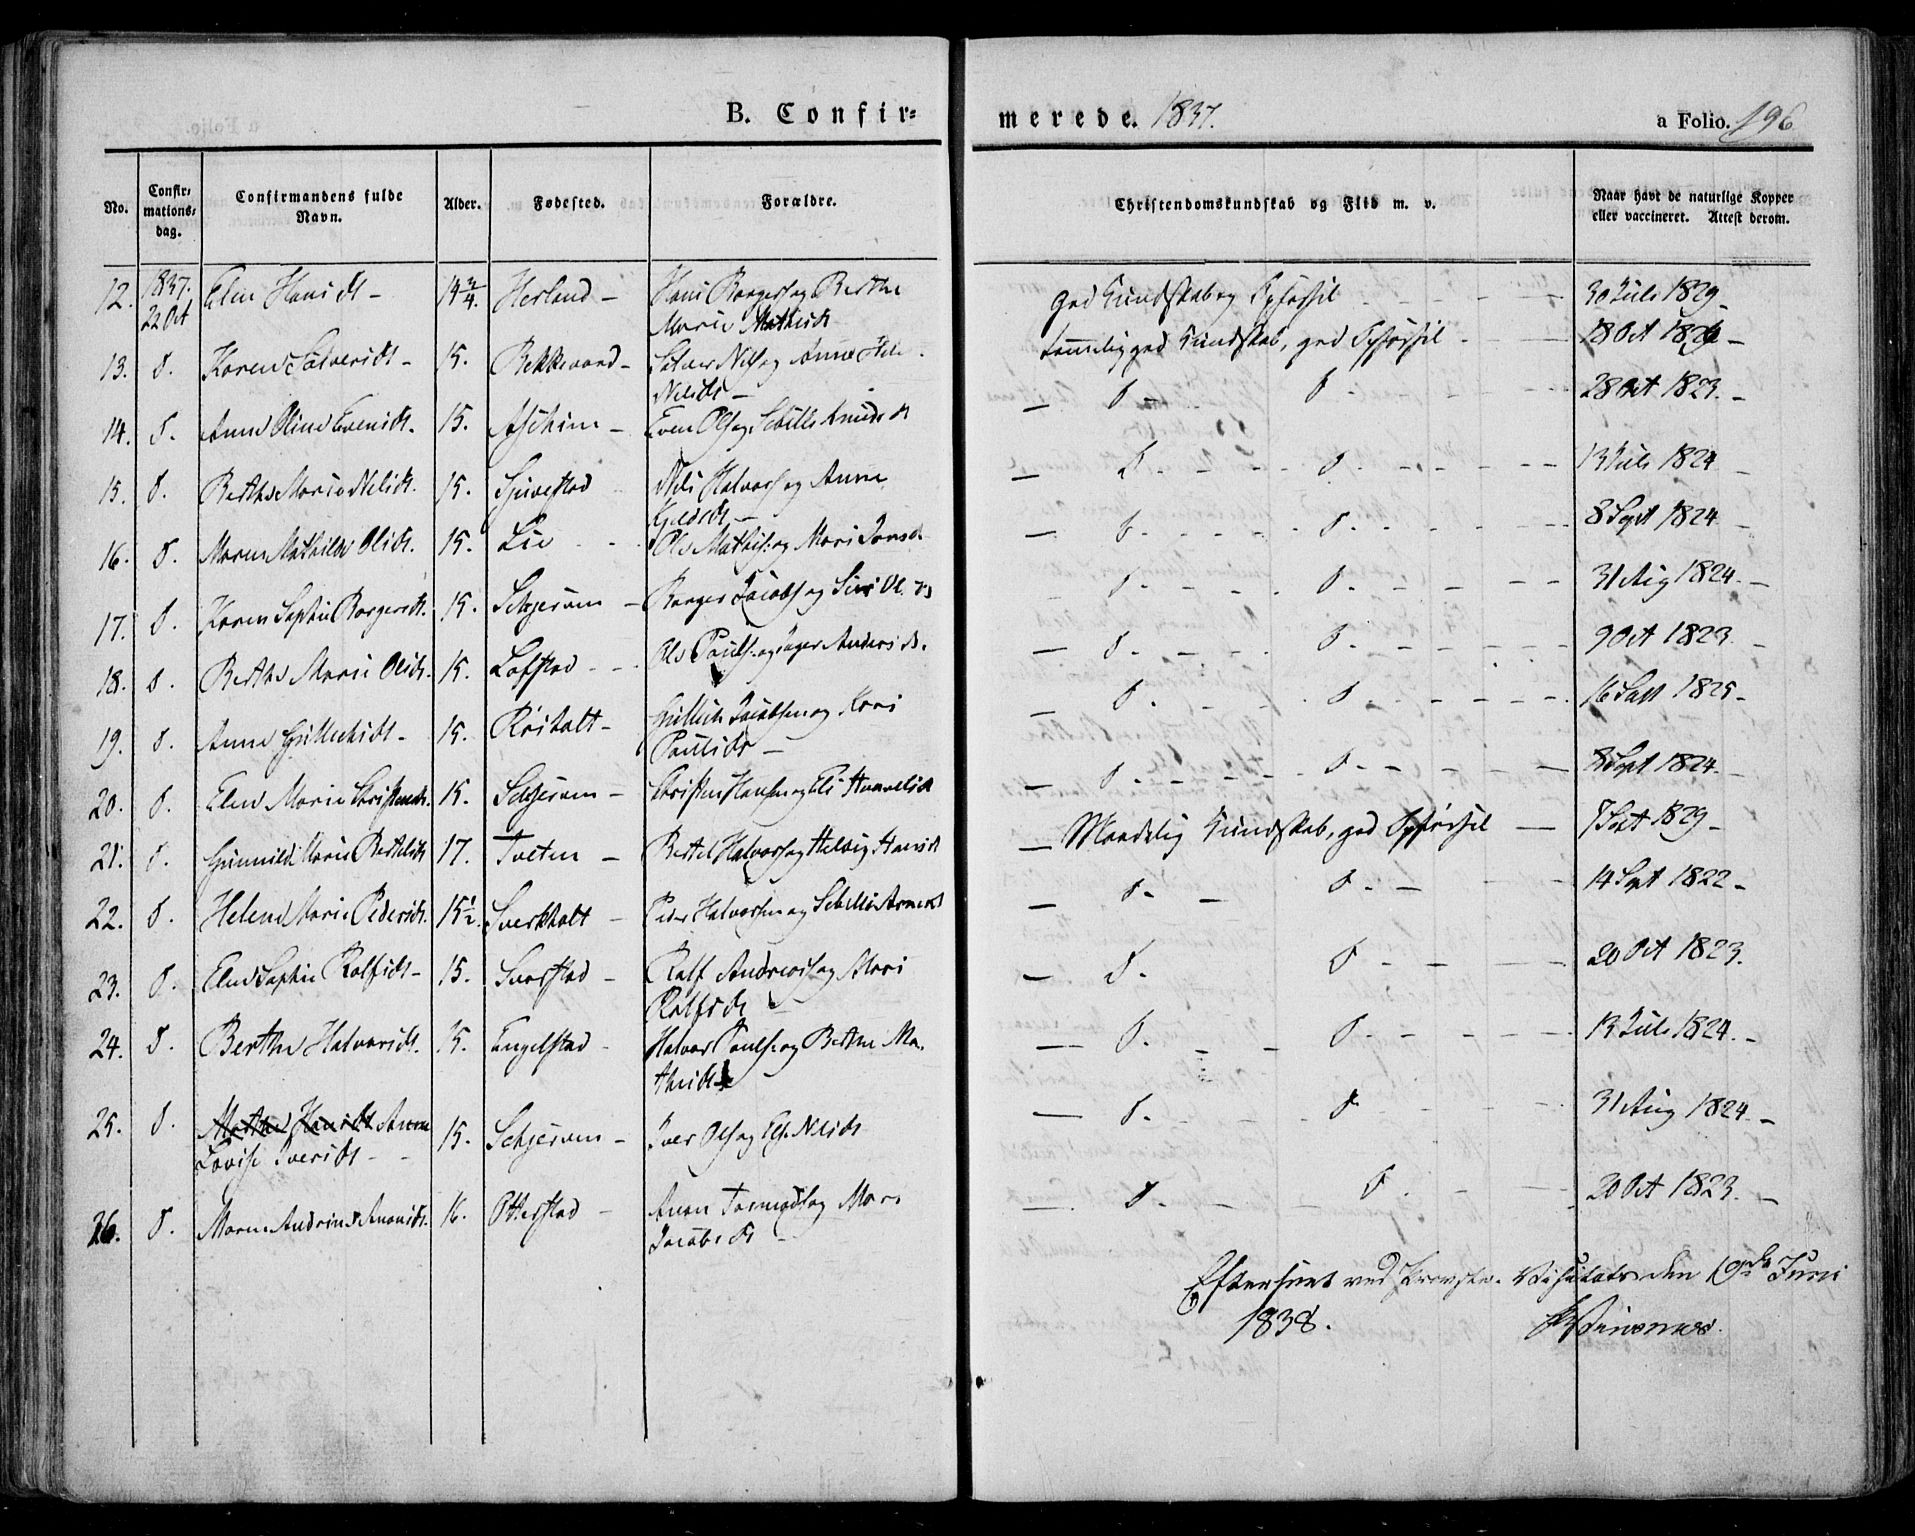 B. Confir=
merede. 1837.
a Folio. 196
No.
Confir=
mations=
dag.
Confirmandens fulde
Navn.
Alder.
Fødested.
Forældre.
Christendomskundskab og Flid m. v.
Naar havt de naturlige Kopper
eller vaccineret. Attest derom.
12. 1837. 22 Oct Elen Hansdt - 14 3/4. Herland - Hans Borgers og Berthe
Marie Mathisdt
God Kundskab og Opførsel - 30 Juli 1829
13. d. Karen Salvesdt - 15. Bekkevard - Salve Nels og Anne
Nilsdt -
temmelig god Kundskab, god Opførsel - 18 Oct 1826 -
14. d. Anne Oline Evensdt. 15. Askim - Even Ols og Sebille Knudsdt
d - d - 28 Oct 1823. -
15. d. Berthe Marie Nelsdt. 15. Nils Halvors og Anne
d - d - 13 Juli 1824 -
16. d. Maren Mathilde Olsdt. 15. Lie Ole Mathis: og Mari Jonsd
d - d - 8 Sept 1824 -
17. d. Karen Sophie Borgersdt. 15. Selgerum - Borger Jacobs og Siri
d - d - 31 Aug 1824. -
18. d. Berthe Marie Olsdt. 15. Lofstad - Ole Pouls: og Inger Andersdt.
d - d - 9 Oct 1823. -
19. d. Anne Gulleksdt - 15. Röisholt - Gullick Jacobsen og Kari
Poulsdt -
d - d - 16 Sept 1825 -
20. d. Elen Marie Christensdt. 15. Selgerum - Christen Hansen og Eli
d - d - 8 Sept 1824 -
21. d. Gunnild Marie Bertelsdt 17. Tveten - Bertel Halvors og Helvig Hansdt
Maadelig Kundskab, god Opførsel - 7 Sept 1829 -
22. d. Helene Marie Pedersdt. 15 1/2. Sverkholt - Peder Halvorsen og Sebille
d - d - 14 Sept 1822 -
23. d. Elen Sophie Rolfsdt - 15. Svarstad - Rolf Andreas og Mari
Rolfsdt
d - d - 20 Oct 1823.
24. d. Berthe Halvorsdt. 15. Engelstad - Halvor Pouls: og Berthe Ma-
thisdt
d - d - 13 Juli 1824. -
25. d. Mathea Hansdt Anne
Lovise Iversdt - 15. Selgerum - Iver Ols og Else Nilsdt
d - d - 31 Aug 1824. -
26. d. Maren Andrine Anonsdt. 16. Otterstad - Anon Tormods og Mari
Jacobsdt -
d - d - 20 Oct 1823. -
Efterseet ved Provste-Visitats den 19de Juni
1838.